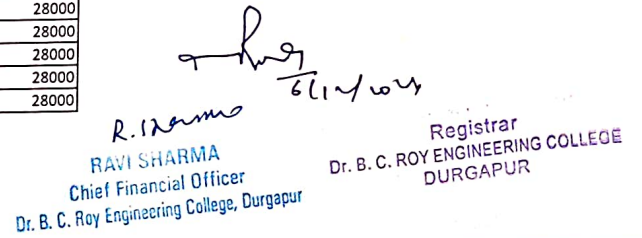 28000
28000
28000
28000
28000
6/12/2024
R. Sharma
RAVI SHARMA
Chief Financial Officer
Dr. B. C. Roy Engineering College, Durgapur
Registrar
Dr. B. C. ROY ENGINEERING COLLEGE
DURGAPUR